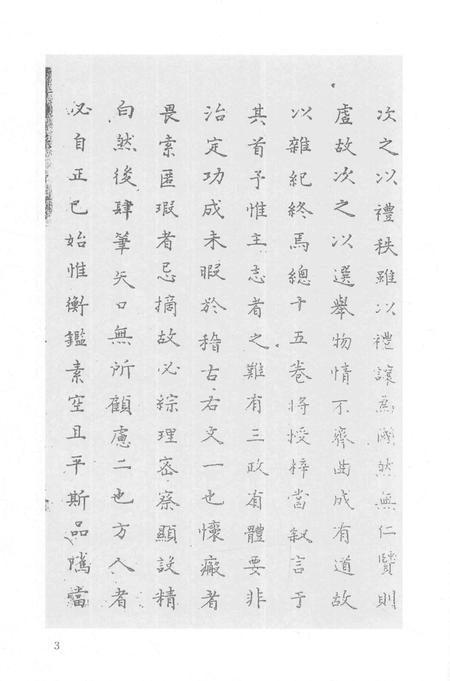 次之以禮秩雖以禮讓為國然無仁賢則
虛故次之以選舉物情不齊曲成有道故
以雜紀終焉總十五卷將授梓當敘言于
其首予惟主志者之難有三政有體要非
治定功成未暇於稽古右文一也懷瘢者
畏索匿瑕者忌摘故必綜理密察顯設精
白然後肆筆矢口無所顧慮二也方人者
必自正已始惟衡鑑素空且平斯品隲當
3